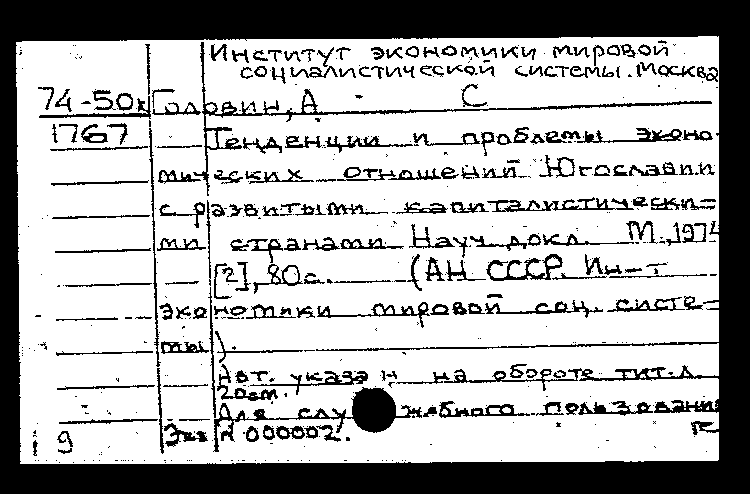 Институт экономики мировой
социалистической системы. Москва
74-50к Головин, А С
1767 Тенденции и проблемы эконо-
мических отношений Югославии
с развитыми капиталистически-
ми странами Науч. докл. М., 1974
[2], 80с. (АН СССР. Ин-т
экономики мировой соц. систе-
мы).
Авт. указан на обороте тит. л.
20см.
Для служебного пользования
i 9 Экз N 000002.